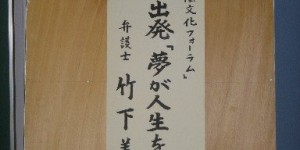 文化フォーラム」
出発「夢が人生を
弁護士 竹下